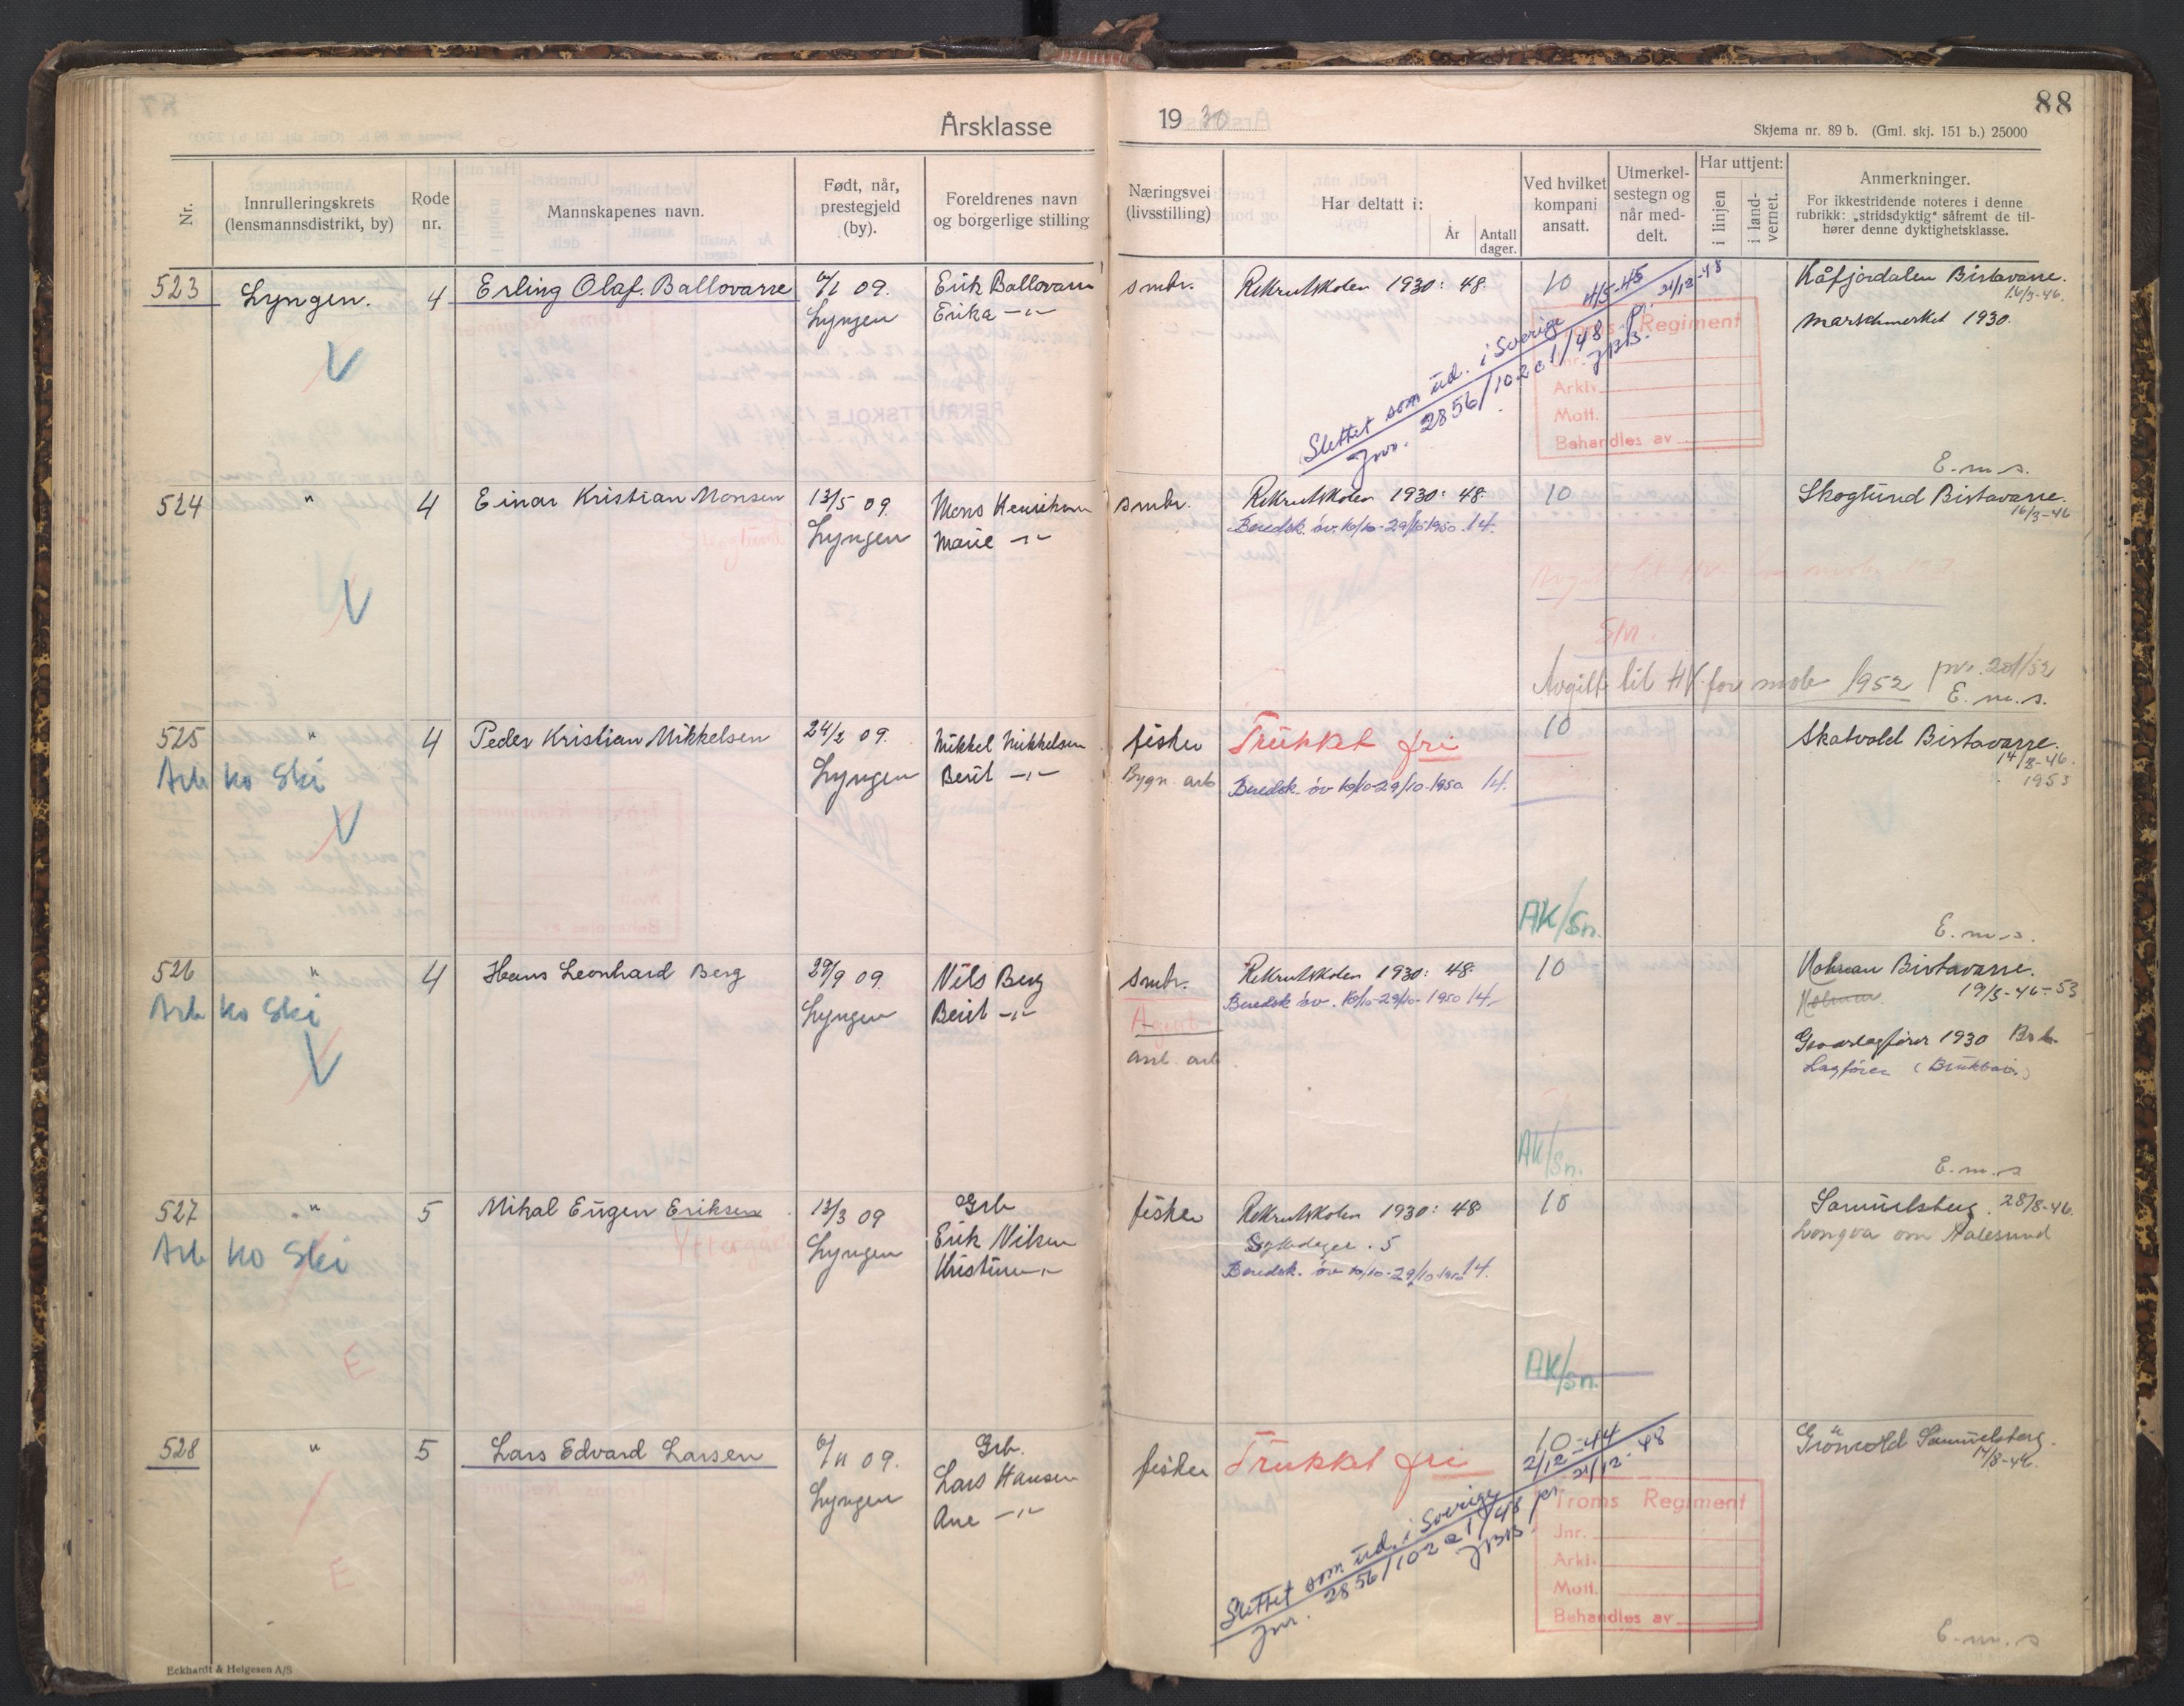 Årsklasse 19 30
88
Skjema nr. 89 b. (Gml. skj. 151 b.) 25000
Nr.
Innrulleringskrets
(lensmannsdistrikt, by)
Rode
nr.
Mannskapenes navn.
Født, når,
prestegjeld
(by).
Foreldrenes navn
og borgerlige stilling
Næringsvei
(livsstilling)
Har deltatt i:
År
Antall
dager.
Ved hvilket
kompani
ansatt.
Utmerkel-
sestegn og
når med-
delt.
Har uttjent:
i linjen
i land-
vernet.
Anmerkninger.
For ikkestridende noteres i denne
rubrikk: „stridsdyktig" såfremt de til-
hører denne dyktighetsklasse.
523 Lyngen. 4 Erling Olaf Ballovarre 09.
Lyngen
Erik Ballovarre
Erika -"-
smbr. Rekrutskolen 1930: 48. 10
Slettet som ud. i Sverige
Jnr. 2856/102 a 1/48 pr.
JBB.
4/5-45
21/12-48
Troms Regiment
Jnr.
Arkiv
Mott.
Behandles av
Kåfjordalen Birtavarre.
16/3-46.
Marschmerket 1930.
E.m.s.
V
524 " 4 Einar Kristian Monsen 13/5 09.
Lyngen
Mons Henriksen
Marie -"-
Skoglund
smbr. Rekrutskolen 1930: 48. 10
Beredsk. øv. 16/10-29/10 1950. 14.
Skoglund Birtavarre.
16/3-46
Avgitt til HV før mob 1952
E.m.s.
V
525 " 4 Peder Kristian Mikkelsen 24/2 09.
Lyngen
Mikkel Mikkelsen
Berit -"-
Arb ko Ski
V
fisker Trukket fri 10
Bygn. arb Beredsk. øv 16/10-29/10-1950 14.
Skatvold Birtavarre.
14/8-46.
1953
AK/Sn.
E.m.s.
526 " 4 Hans Leonhard Berg 29/9 09.
Lyngen
Nils Berg
Berit -"-
Arb ko Ski
V
smbr. Rekrutskolen 1930: 48. 10
Beredsk øv. 16/10-29/10-1950 14.
anl. arb
Holman Birtavarre.
19/3-46-53
Holman
Geværlagfører 1930
Lagfører
AK/Sn.
E.m.s
527 " 5 Mikal Eugen Eriksen 13/3 09
Yttergård
Lyngen
Grb
Erik Nilsen
Kristine -"-
Arb ko Ski
E
fisker Rekrutskolen 1930: 48. 10
Sykedager. 5
Beredsk. øv 16/10-29/10 1950 14.
Samuelsberg. 28/8-46.
Longva om Aalesund
AK/Sn.
528 " 5 Lars Edvard Larsen 6/11 09.
Lyngen
Grb.
Lars Hansen
Ane -"-
E
fisker Trukket fri 10
2/12-44
21/12-48
Slettet som ud. i Sverige
Jnr. 2856/102 a 1/48 pr.
JBB.
Troms Regiment
Jnr.
Arkiv
Mott.
Behandles av
Grönvold Samuelsberg.
E.m.s
Eckhardt & Helgesen A/S